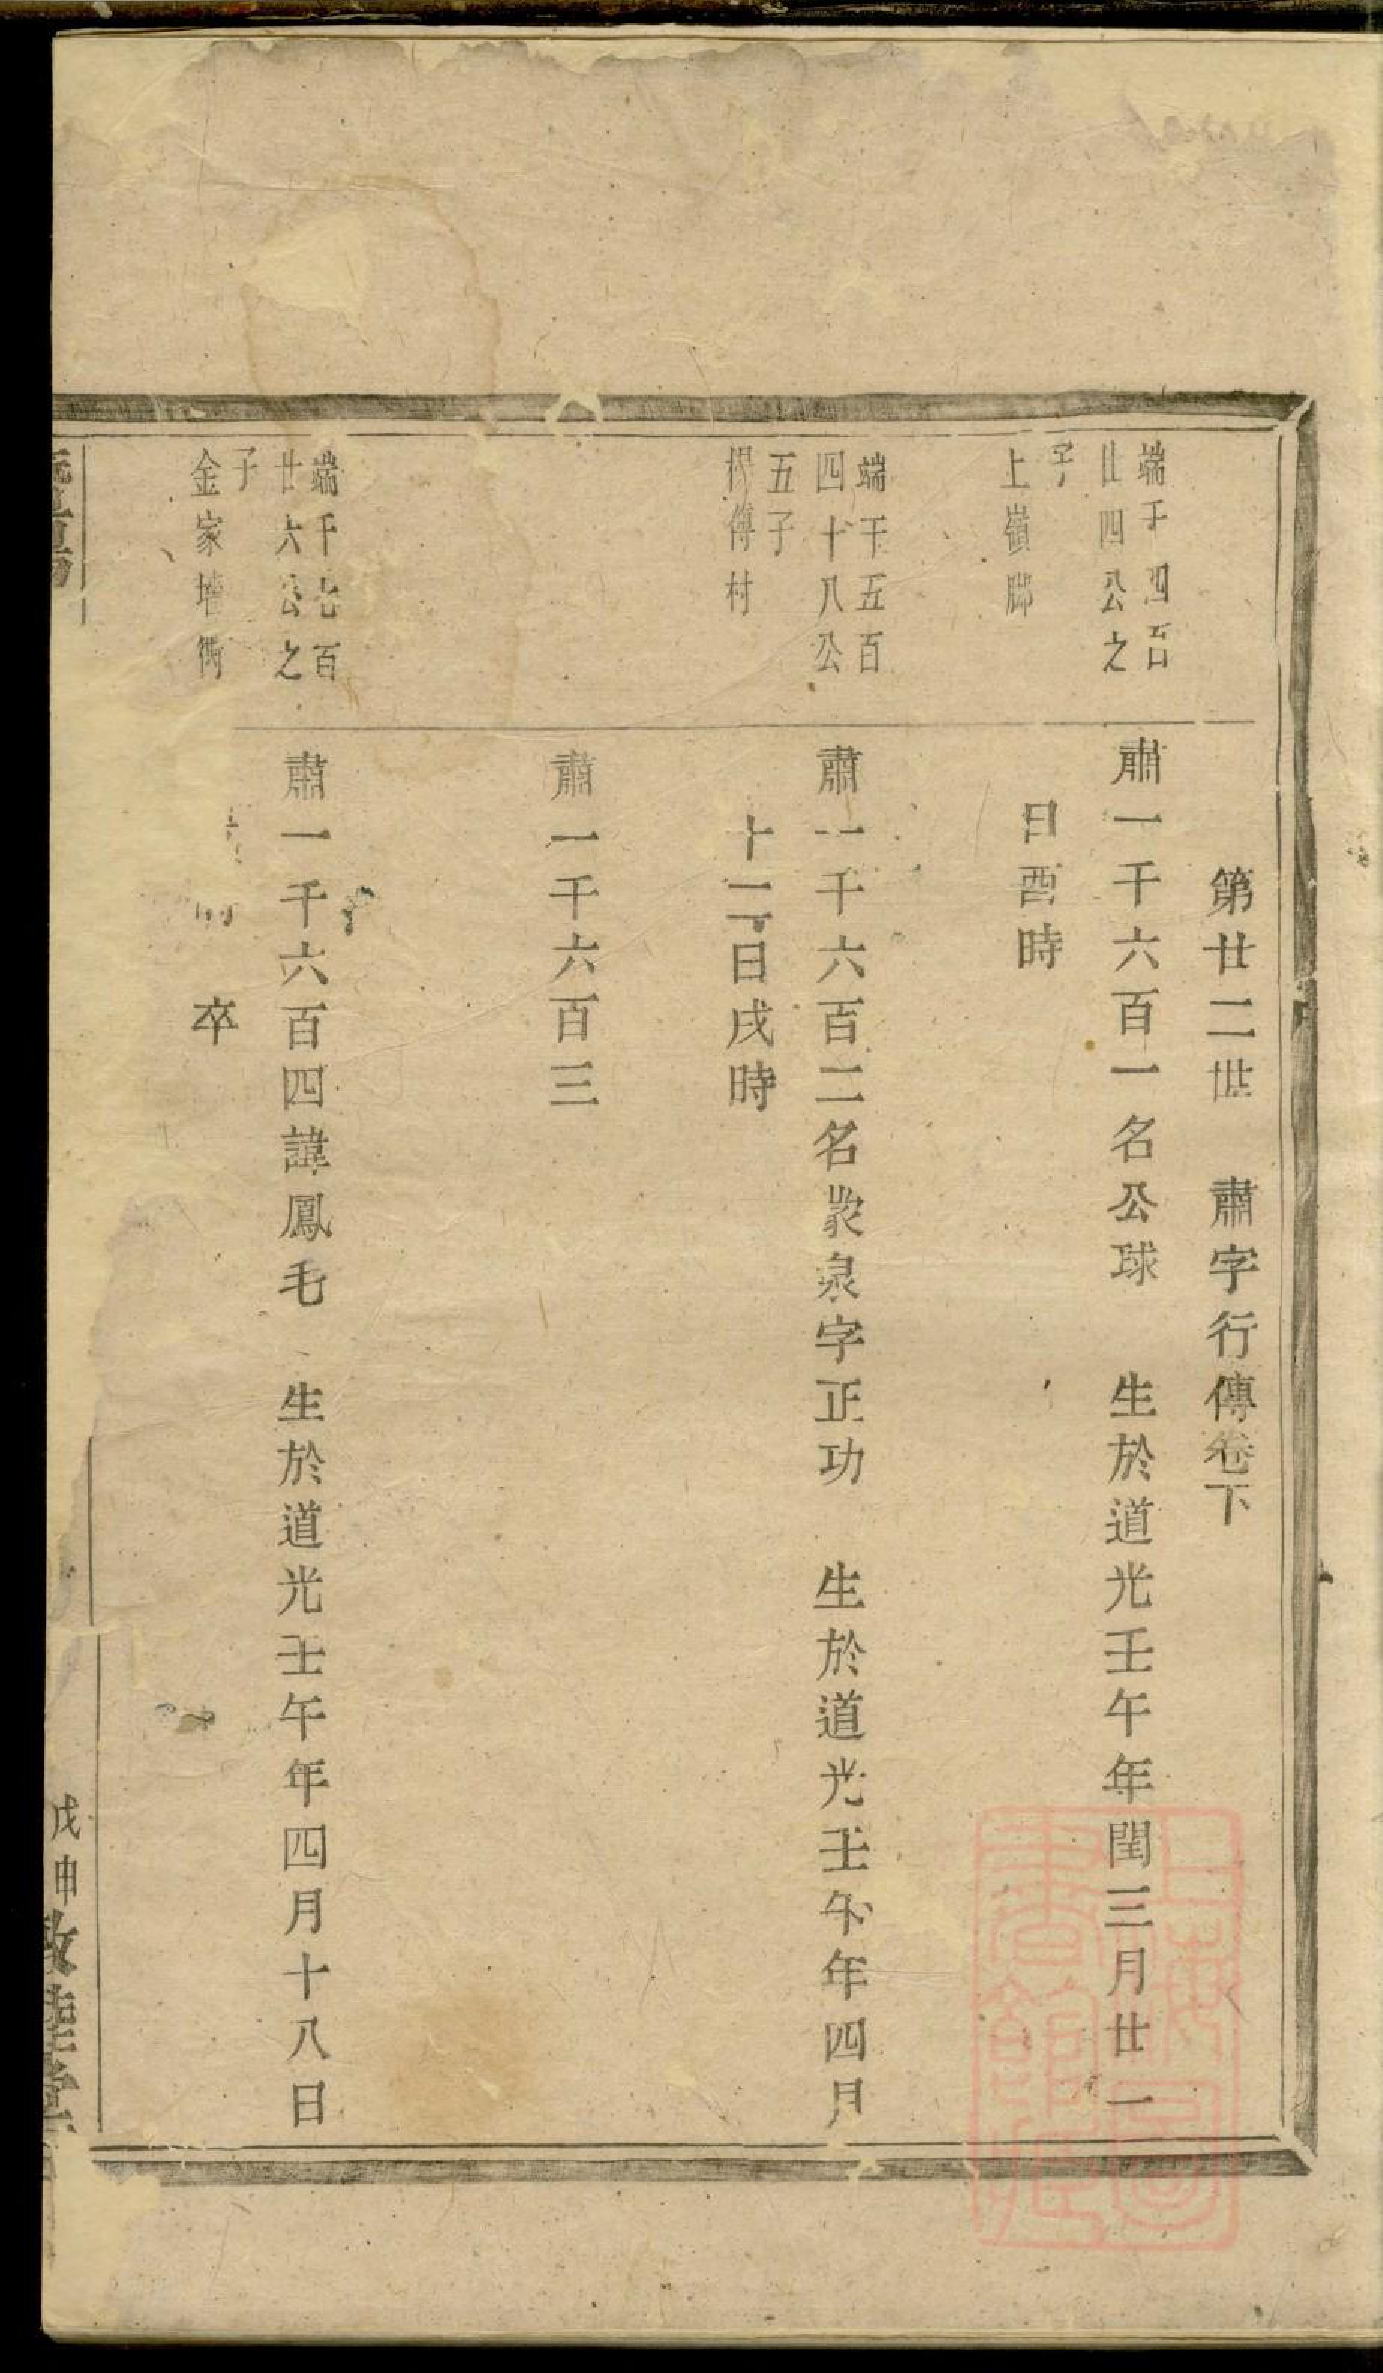 第廿二世　肅字行傳卷下
端千四百
廿四公之
子
上嶺腳
肅一千六百一名公球　生於道光壬午年閏三月廿一
日酉時
端千五百
四十八公
五子
傅村
肅一千六百二名泉字正功　生於道光壬午年四月
十二日戌時
肅一千六百三
端千七百
廿六公之
子
金家
肅一千六百四諱鳳毛　生於道光壬午年四月十八日
卒
戊申敦睦堂
上海圖書館藏